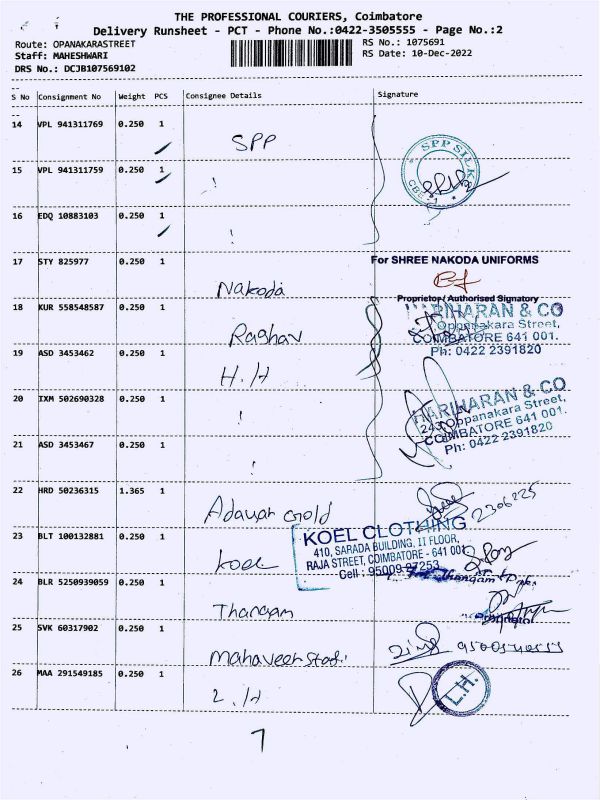 THE PROFESSIONAL COURIERS, Coimbatore
Delivery Runsheet - PCT - Phone No.:0422-3505555 - Page No.:2
Route: OPANAKARASTREET
RS No.: 1075691
Staff: MAHESHWARI
RS Date: 10-Dec-2022
DRS No.: DCJB107569102
S No Consignment No Weight PCS Consignee Details Signature
14 VPL 941311769 0.250 1 SPP
SPP SILKS
CBE-1
15 VPL 941311759 0.250 1 !
16 EDQ 10883103 0.250 1 !
17 STY 825977 0.250 1 Nakoda
For SHREE NAKODA UNIFORMS
Proprietor / Authorised Signatory
18 KUR 558548587 0.250 1 Raghav
HARIHARAN & CO
Oppanakara Street,
COIMBATORE 641 001.
Ph: 0422 2391820
19 ASD 3453462 0.250 1 H.H
20 IXM 502690328 0.250 1 !
HARIHARAN & CO
243, Oppanakara Street,
COIMBATORE 641 001.
Ph: 0422 2391820
21 ASD 3453467 0.250 1 !
22 HRD 50236315 1.365 1 Adayar Gold
2306225
23 BLT 100132881 0.250 1 koel
KOEL CLOTHING
410, SARADA BUILDING, II FLOOR,
RAJA STREET, COIMBATORE - 641 001
Cell : 95009 27253
24 BLR 5250939059 0.250 1 Thangam
Proprietor
25 SVK 60317902 0.250 1 Mahaveer
26 MAA 291549185 0.250 1 L.H
L.H.
7